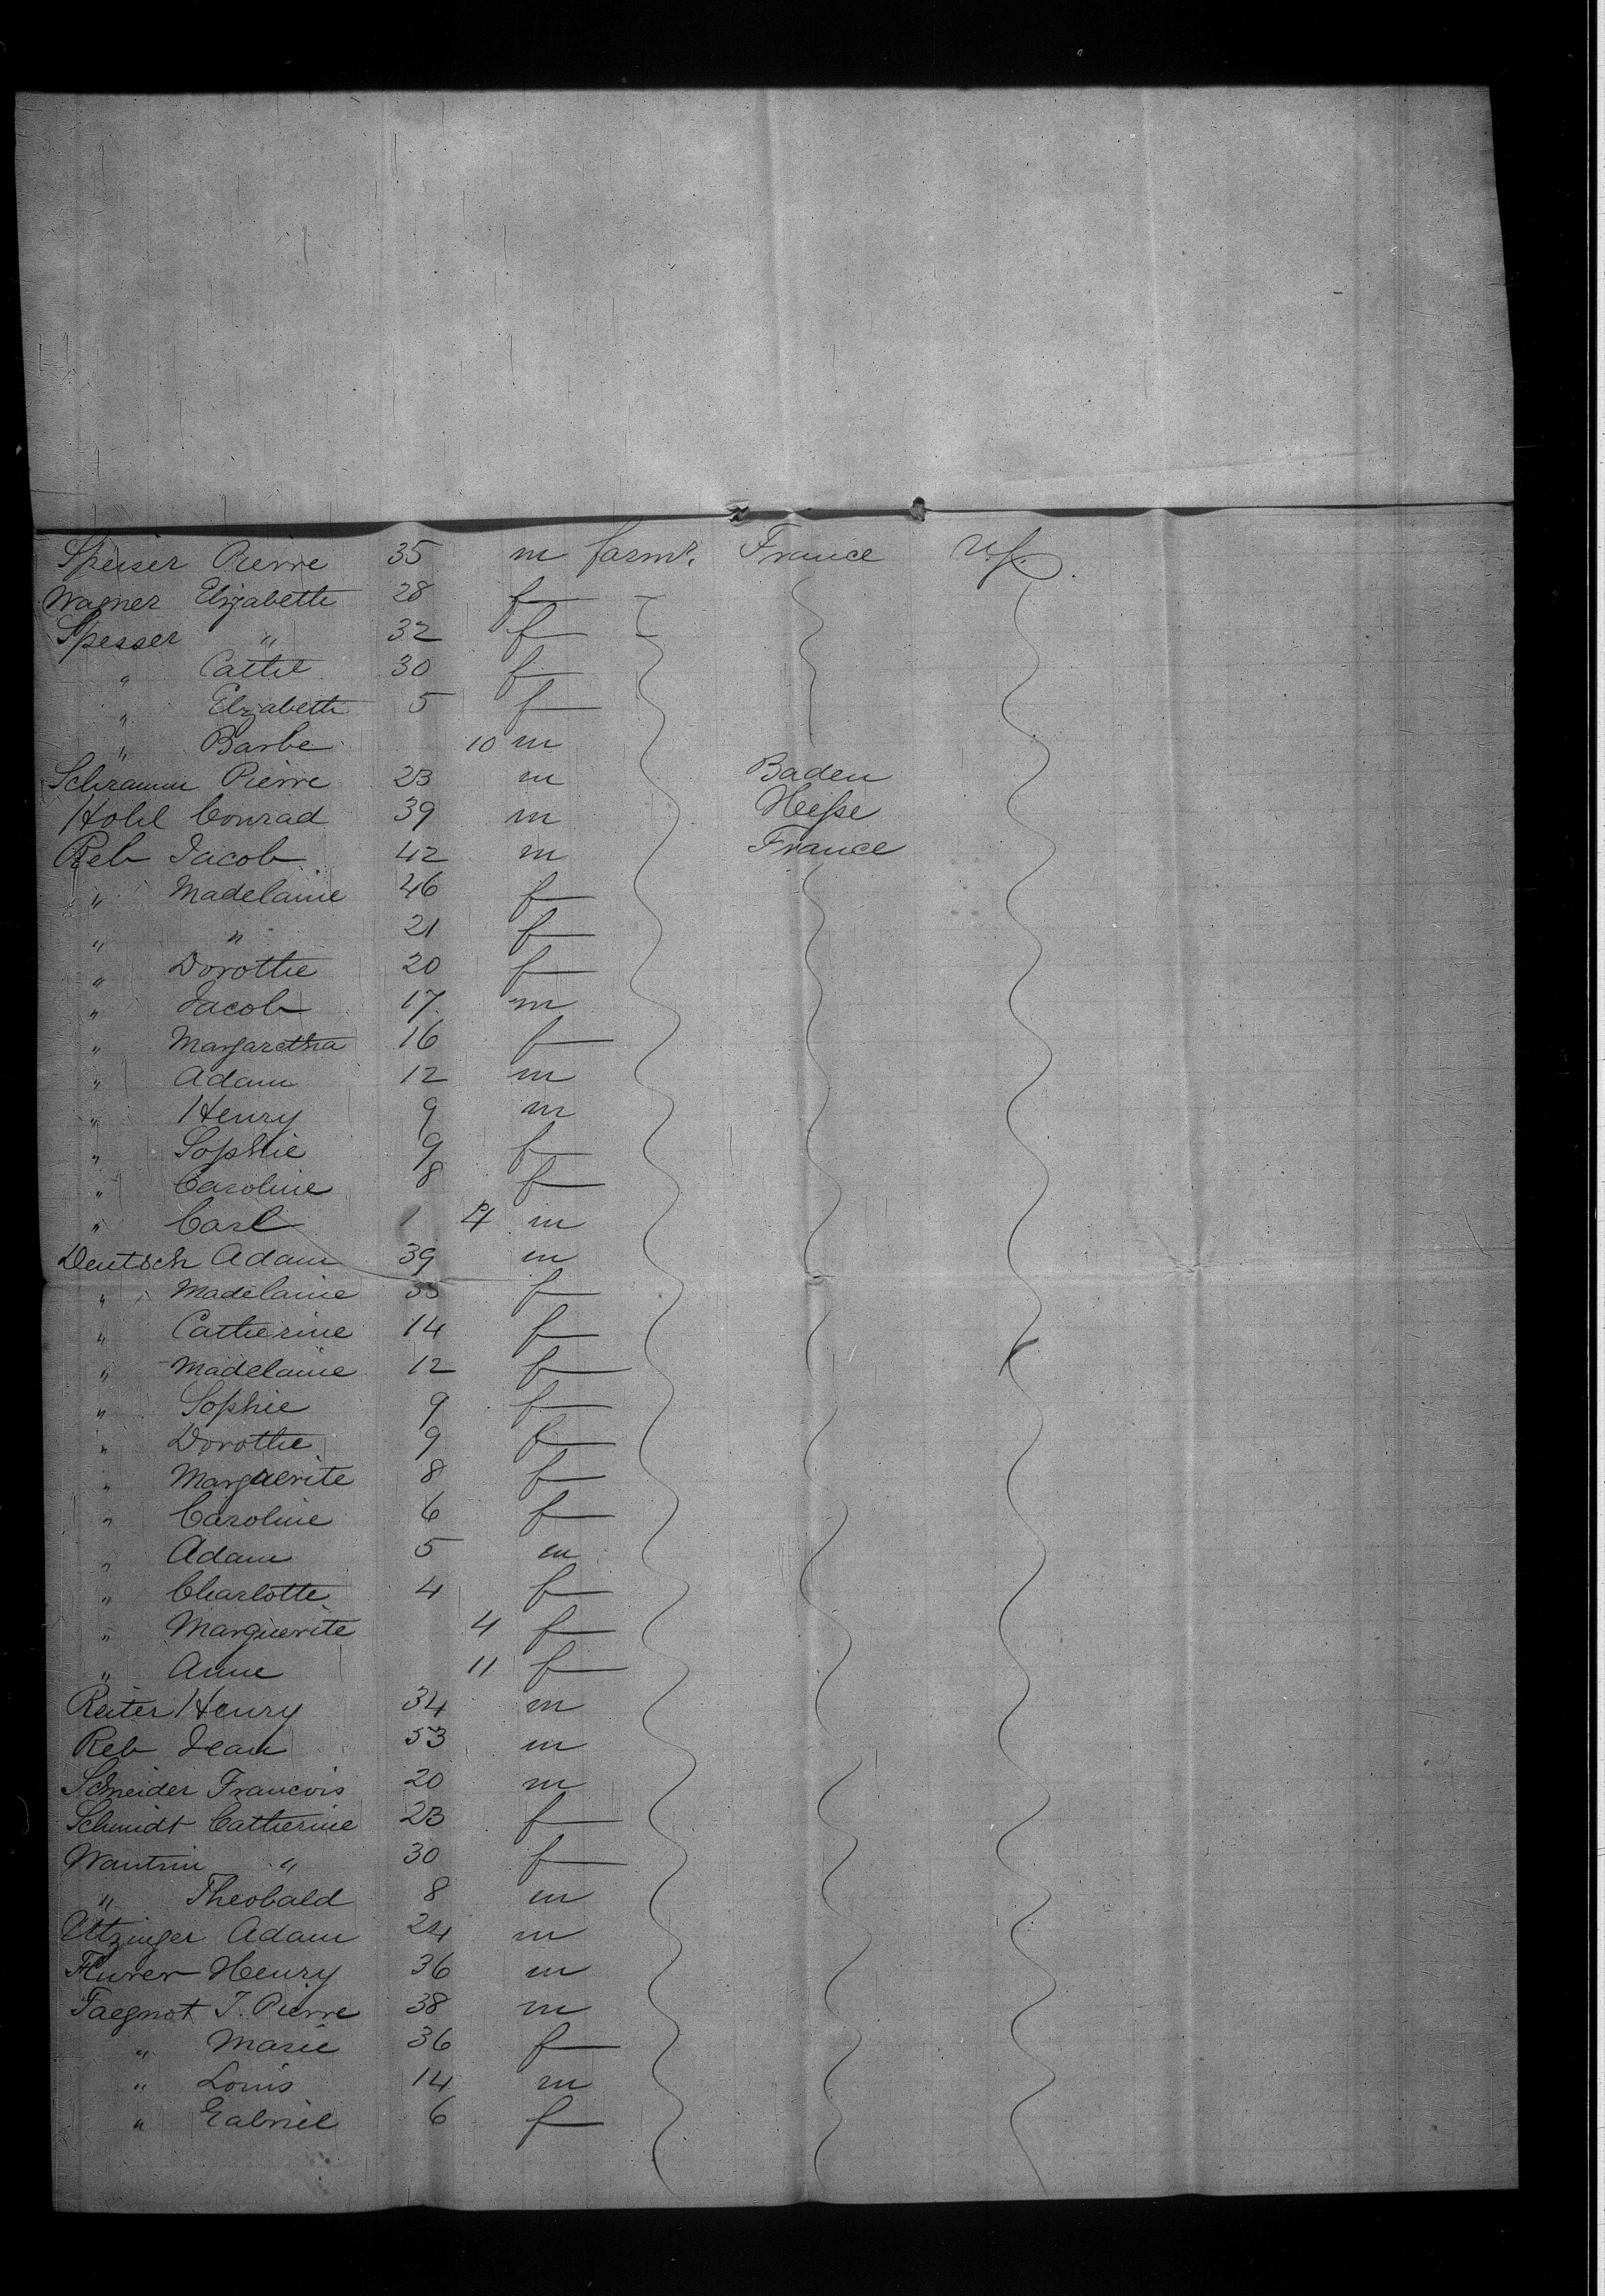 Speiser Pierre 35 m farmr. France U.S.
Wagner Elizabeth 28 f
Spesser " 32 f
" Cathe 30 f
" Elizabeth 5 f
" Barbe 10 m
Schramm Pierre 23 m Baden
Hohl Conrad 39 m Hesse
Reb Jacob 42 m France
" Madelaine 46 f
" " 21 f
" Dorothe 20 f
" Jacob 17 m
" Margaretha 16 f
" Adam 12 m
" Henry 9 m
" Sophie 9 f
" Caroline 8 f
" Carl 4 m
Deutsch Adam 39 m
" Madelaine 35 f
" Catherine 14 f
" Madelaine 12 f
" Sophie 9 f
" Dorothe 9 f
" Marguerite 8 f
" Caroline 6 f
" Adam 5 m
" Charlotte 4 f
" Marguerite 4 f
" Anne 11 f
Reiter Henry 34 m
Reb Jean 53 m
Schneider Francois 20 m
Schmidt Catherine 23 f
Wantrin " 30 f
" Theobald 8 m
Utzinger Adam 24 m
Henry 36 m
Taegnot J. Pierre 38 m
" Marie 36 f
" Louis 14 m
" Gabriel 6 f